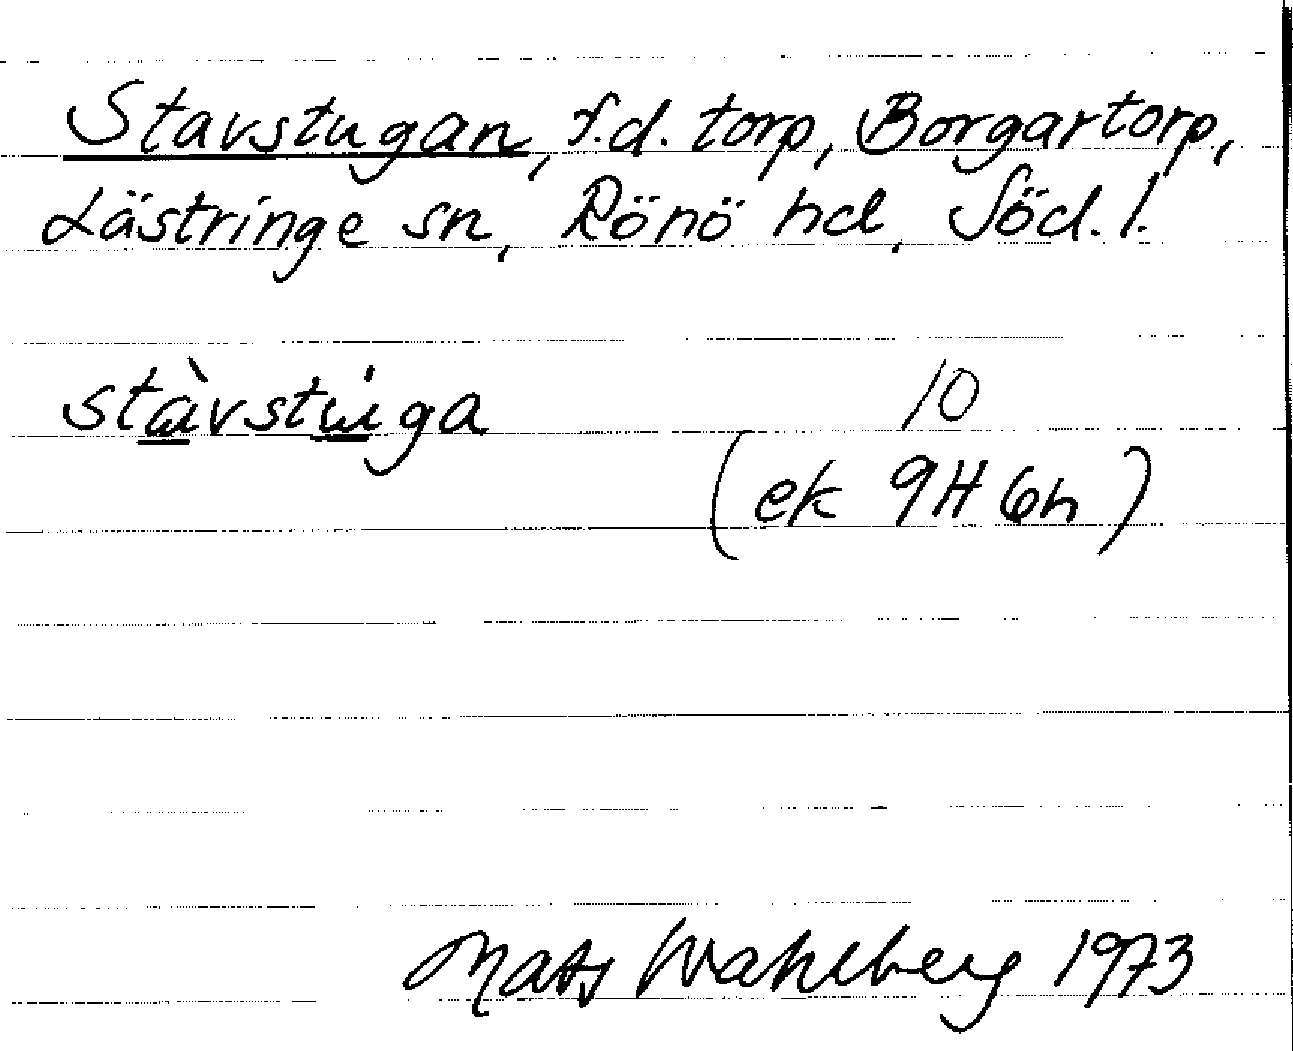 Stavstugan, f.d. torp, Borgartorp,
Lästringe sn, Rönö hd, Söd. l.
stàvstuga 10
(ek 9H 6h)
Mats Wahlberg 1973